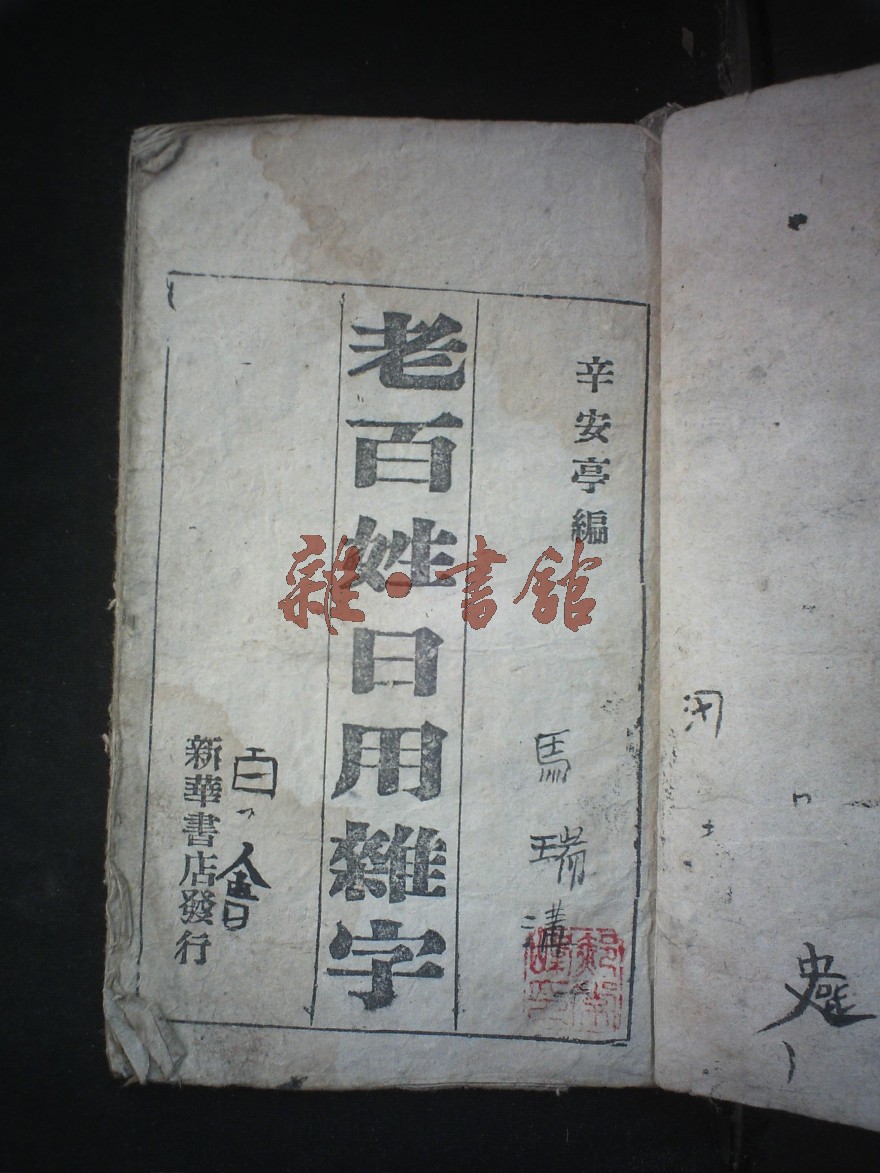 辛安亭編
馬瑞溝
老百姓日用雜字
白
會
新華書店發行
雜·書館